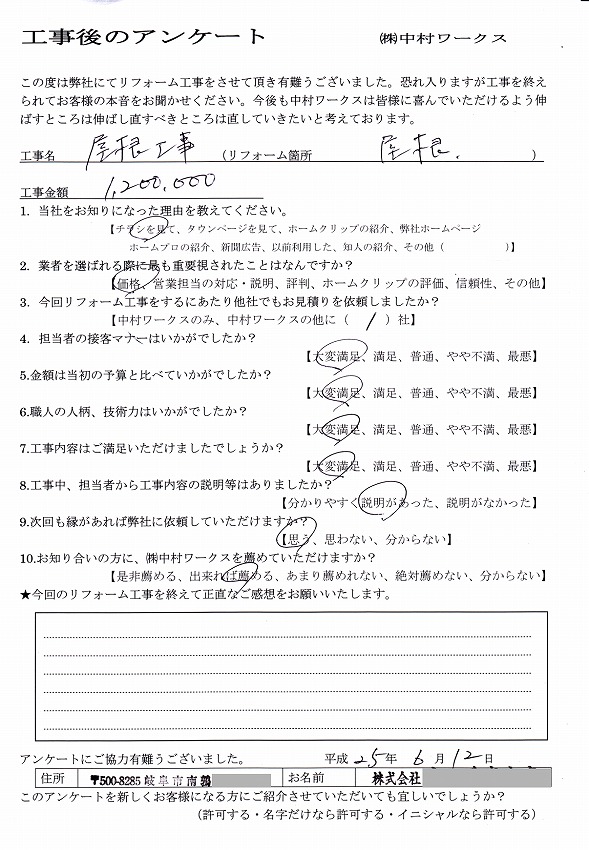 工事後のアンケート ㈱中村ワークス
この度は弊社にてリフォーム工事をさせて頂き有難うございました。恐れ入りますが工事を終え
られてお客様の本音をお聞かせください。今後も中村ワークスは皆様に喜んでいただけるよう伸
ばすところは伸ばし直すべきところは直していきたいと考えております。
工事名 屋根工事 (リフォーム箇所 屋根. )
工事金額 1,200,000
1. 当社をお知りになった理由を教えてください。
【チラシを見て、タウンページを見て、ホームクリップの紹介、弊社ホームページ
ホームプロの紹介、新聞広告、以前利用した、知人の紹介、その他( )】
2. 業者を選ばれる際に最も重要視されたことはなんですか？
【価格、営業担当の対応・説明、評判、ホームクリップの評価、信頼性、その他】
3. 今回リフォーム工事をするにあたり他社でもお見積りを依頼しましたか？
【中村ワークスのみ、中村ワークスの他に( 1 )社】
4. 担当者の接客マナーはいかがでしたか？
【大変満足、満足、普通、やや不満、最悪】
5.金額は当初の予算と比べていかがでしたか？
【大変満足、満足、普通、やや不満、最悪】
6.職人の人柄、技術力はいかがでしたか？
【大変満足、満足、普通、やや不満、最悪】
7.工事内容はご満足いただけましたでしょうか？
【大変満足、満足、普通、やや不満、最悪】
8.工事中、担当者から工事内容の説明等はありましたか？
【分かりやすく説明があった、説明がなかった】
9.次回も縁があれば弊社に依頼していただけますか？
【思う、思わない、分からない】
10.お知り合いの方に、㈱中村ワークスを薦めていただけますか？
【是非薦める、出来れば薦める、あまり薦めれない、絶対薦めない、分からない】
★今回のリフォーム工事を終えて正直なご感想をお願いいたします。
アンケートにご協力有難うございました。 平成 25年 6月 12日
住所 〒500-8285 岐阜市南鶉 お名前 株式会社
このアンケートを新しくお客様になる方にご紹介させていただいても宜しいでしょうか？
(許可する・名字だけなら許可する・イニシャルなら許可する)